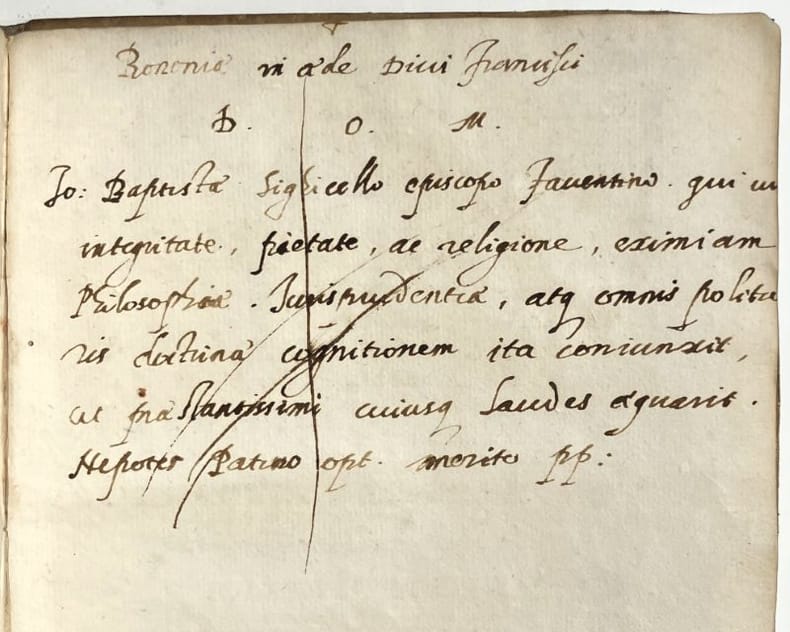 Bononiæ in æde Divi Francisci
D. O. M.
Jo: Baptistæ Sighicello episcopo Faventino. qui
integritate, pietate, ac religione, eximiam
Philosophiæ. Jurisprudentiæ, atq omnis politio
ris doctrinæ cognitionem ita coniunxit,
ut præstantissimi cuiusq laudes æquarit.
Nepotes Patruo opt. merito pp: